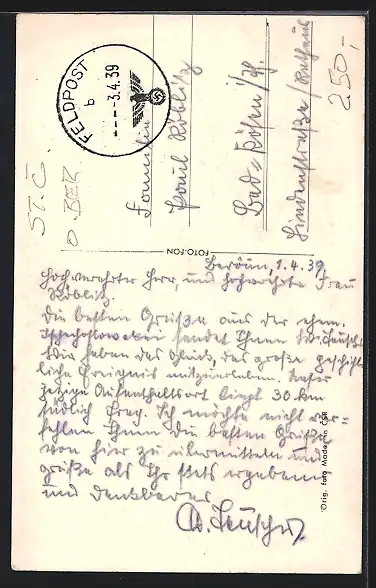 FELDPOST
b
---3.4.39
250,-
ST. C.
O BER
Familie
Paul Köblitz
Bad-Kösen i/Th.
Lindenstraße/Rathaus
FOTO-FON
Beroun, 1.4.39.
Hochverehrter Herr, und hochverehrte Frau
Köblitz.
Die besten Grüße aus der ehm.
Tschechoslowakei sendet Ihnen
Wir haben das Glück, das große geschicht-
liche Ereignis mitzuerleben. Unser
jetzige Aufenthaltsort liegt 30 km
südlich Prag. Ich möchte nicht ver=
fehlen Ihnen die besten Grüße
von hier zu übermitteln und
grüße als Ihr stets ergebener
und dankbarer
Orig. foto Made in ČSR